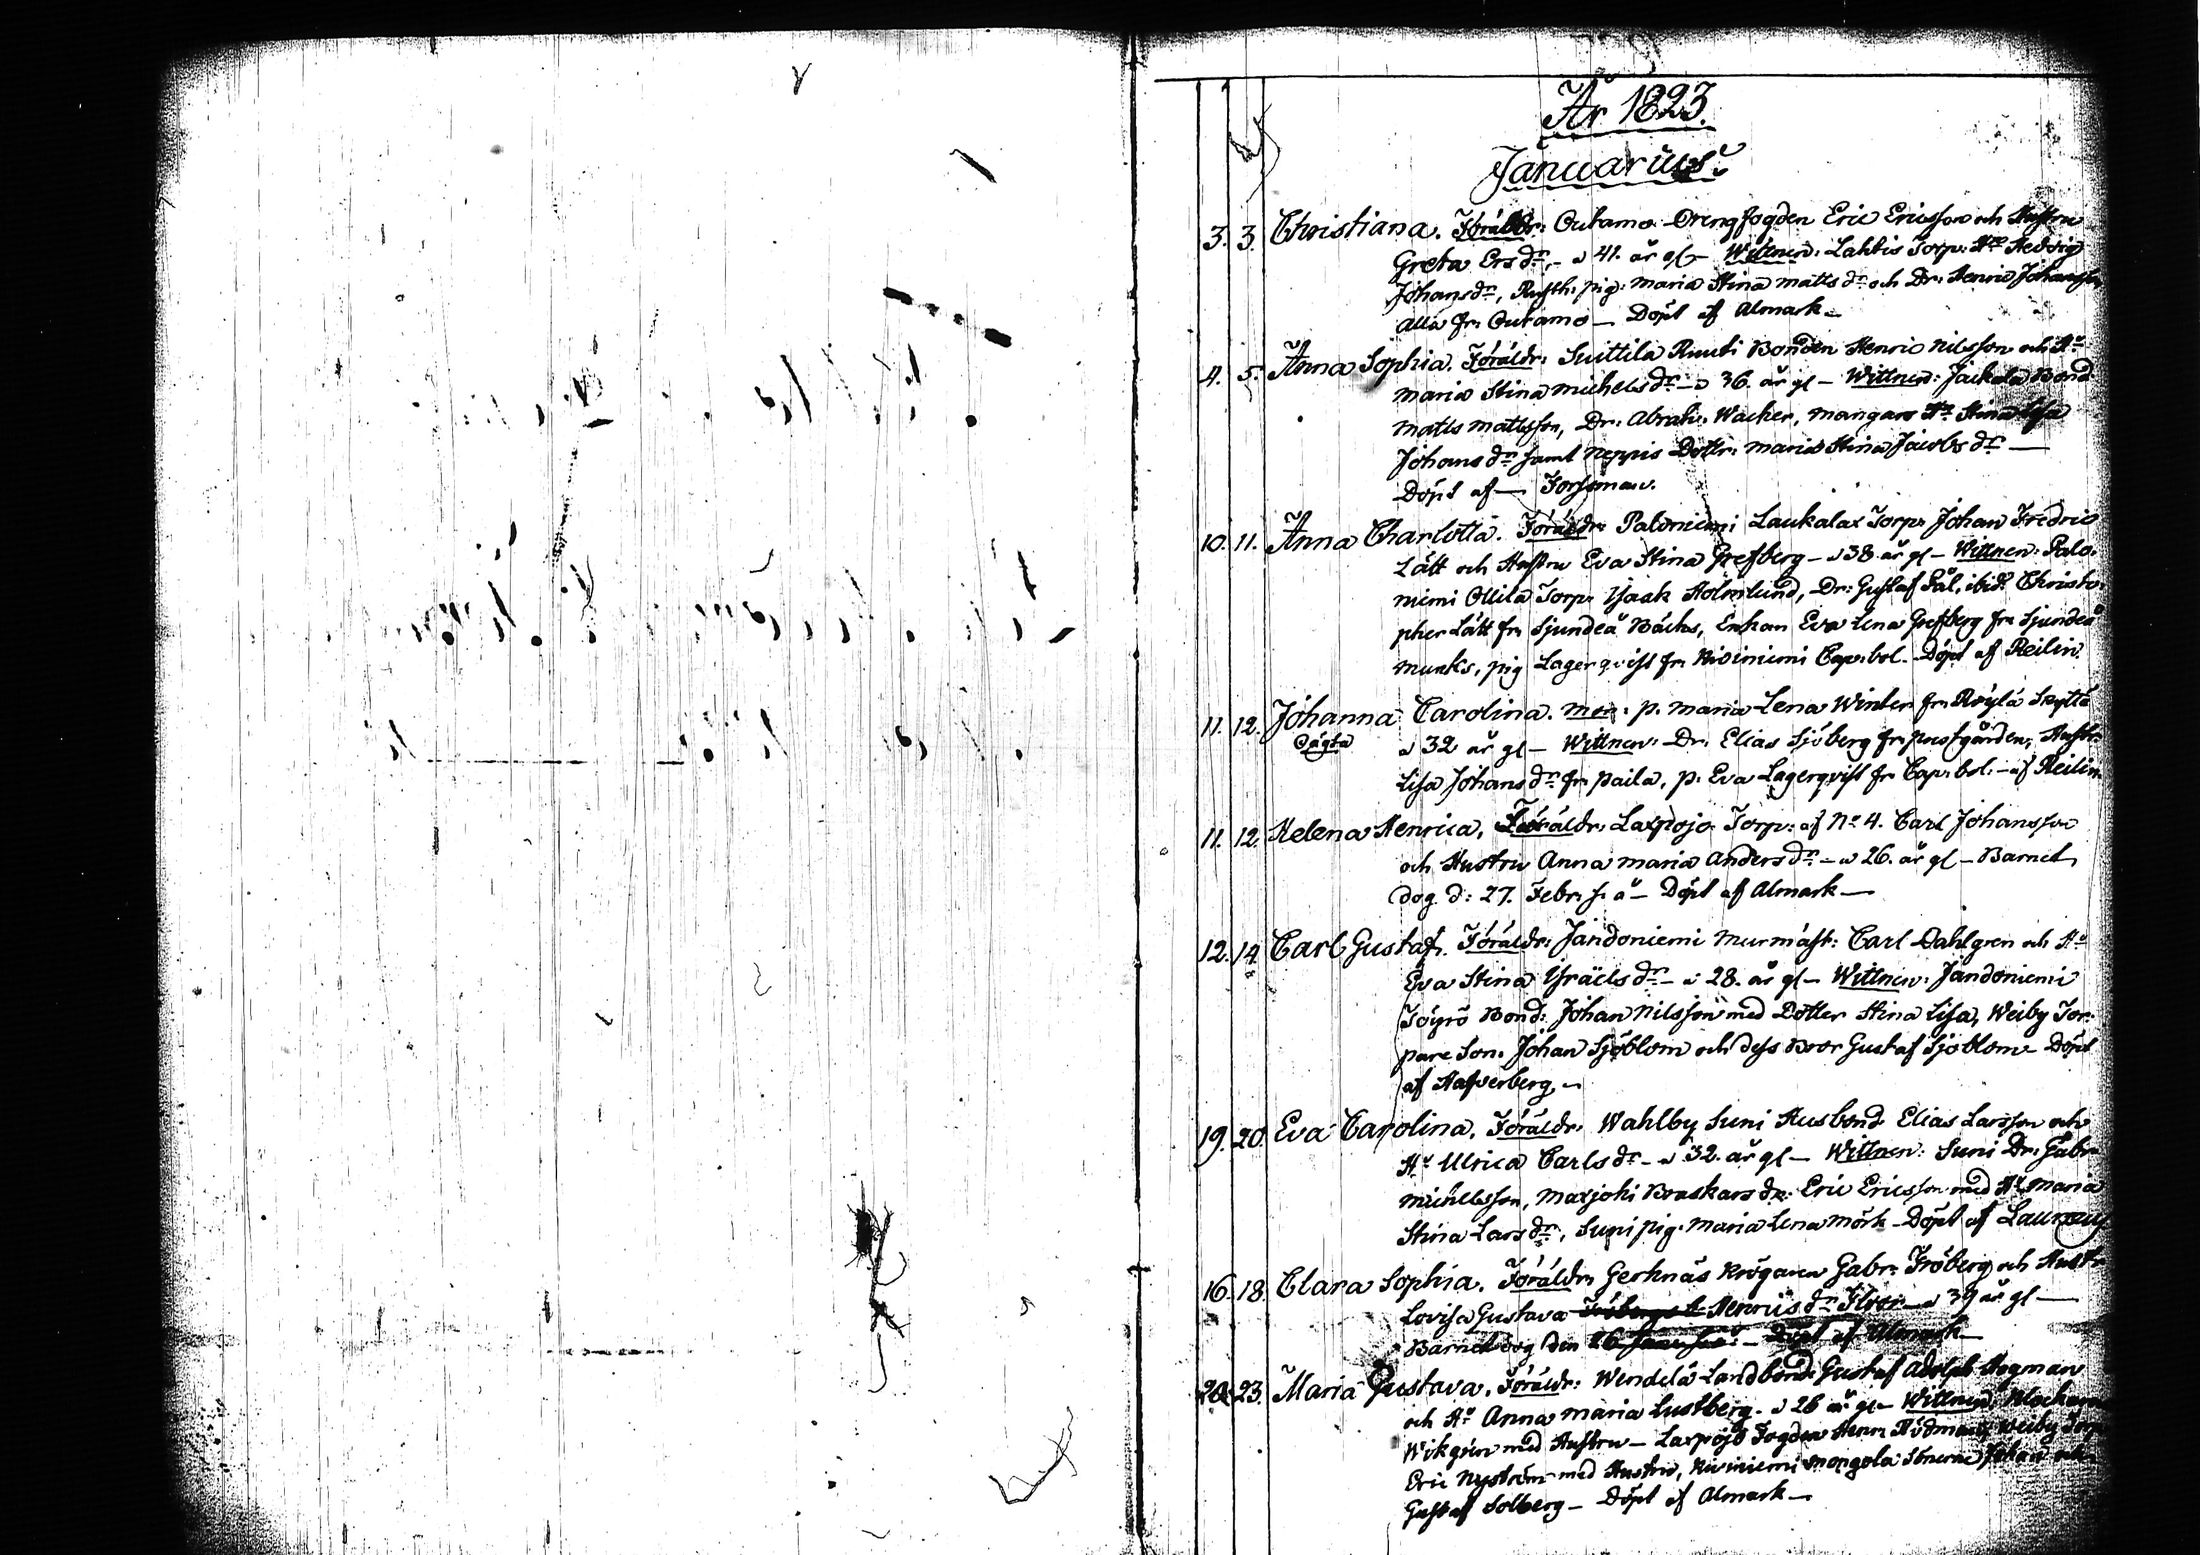 År 1823.
Januarius.
3. 3. Christiana. Föräldr: Outamo Drengfogden Eric Ericsson och Hustru
Greta Ersdr, - 41. år gl - Wittnen: Lahtis Torp: Ha Hedvig
Johansdr, Rusth: pig: Maria Stina Matts dr och Dr: Henric Johansson
alla fr: Outamo - Döpt af Almark -
4. 5. Anna Sophia. Föräldr: Suittila Ruuti Bonden Henric Nilsson och Hu
Maria Stina Michelsdr - 36. år gl - Wittnen: Jaikala Bond
Matts Mattsson, Dr: Abrah: Wacker, Mangars Hu Stina Lisa
Johans dr samt Neppis Dottr: Maria Stina Jacobs dr -
Döpt af - Forsman.
10. 11. Anna Charlotta. Föräldr: Paloniemi Laukalax Torp: Johan Fredric
Lätt och Hustru Eva Stina Grefberg - 38 år gl - Wittnen: Palo-
niemi Ollila Torp: Isaak Holmlund, Dr: Gustaf Pål, ibid: Christo-
pher Lätt fr: Sjundeå Bäcks, Enkan Eva Lena Grefberg fr: Sjundeå
Munks, pig Lagerqvist fr: Kiviniemi Cap: bol. Döpt af Reilin.
11. 12. Johanna Carolina. Mod: p. Maria Lena Winter fr: Röylä Skyttä
Oägta 32 år gl - Wittnen: Dr: Elias Sjöberg fr: prestgården, Hustr:
Lisa Johans dr fr: Paila, p. Eva Lagerqvist fr: Cap: bol: - af Reilin
11. 12. Helena Henrica, Föräldr: Laxpojo Torp: af No 4. Carl Johansson
och Hustru Anna Maria Anders dr - 26. år gl - Barnet
dog d: 27. Febr: s. å - Döpt af Almark -
12. 14. Carl Gustaf. Föräldr: Jandoniemi Murmäst: Carl Dahlgren och Hu
Eva Stina Israels dr - 28. år gl - Wittnen: Jandoniemi
Töyrö Bond: Johan Nilsson med Dotter Stina Lisa, Weiby Tor-
pare Son: Johan Sjöblom och dess Bror Gustaf Sjöblom - Döpt
af Hafverberg, -
19. 20. Eva Carolina. Föräldr: Wahlby Suni Husbond Elias Larsson och
Hu Ulrica Carls dr - 32. år gl - Wittnen: Suni Dr: Gabr:
Michelsson, Maxjoki Braskars Dr: Eric Ericsson med Hu Maria
Stina Lars dr, Suni pig: Maria Lena Mörk - Döpt af
16. 18. Clara Sophia. Föräldr: Gerknäs Krögaren Gabr: Fröberg och Hustr
Lovisa Gustava Henricsdr - 39 år gl -
Barnet dog den 26 - Döpt af Almark -
23. Maria Gustava. Föräldr: Wendelä Landbond: Gustaf Adolph Hogman
och Hu Anna Maria Lustberg. 26 år gl - Wittnen: Klockaren
Wikgren med Hustru - Laxpojo Fogden Henr: Weiby Torp
Eric Nyström med Hustru, Kiviniemi Mongola Sönerne Johan och
Gustaf Solberg - Döpt af Almark -